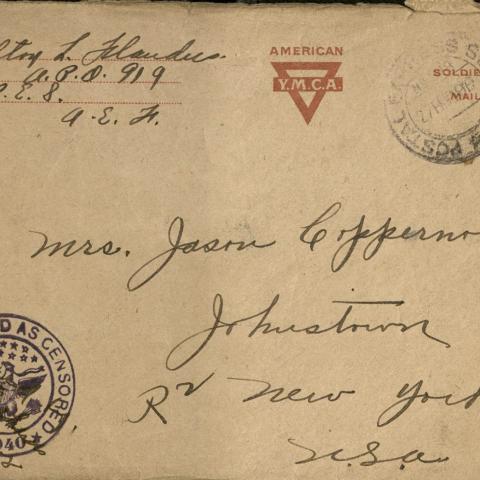 lton L. Flanders
A.P.O. 919
A.E.F.
AMERICAN
Y.M.C.A.
SOLDIE
MAIL
POSTAL
Mrs. Jason Copperno
Johnstown
R2 New York
U.S.A.
D AS CENSORED
040